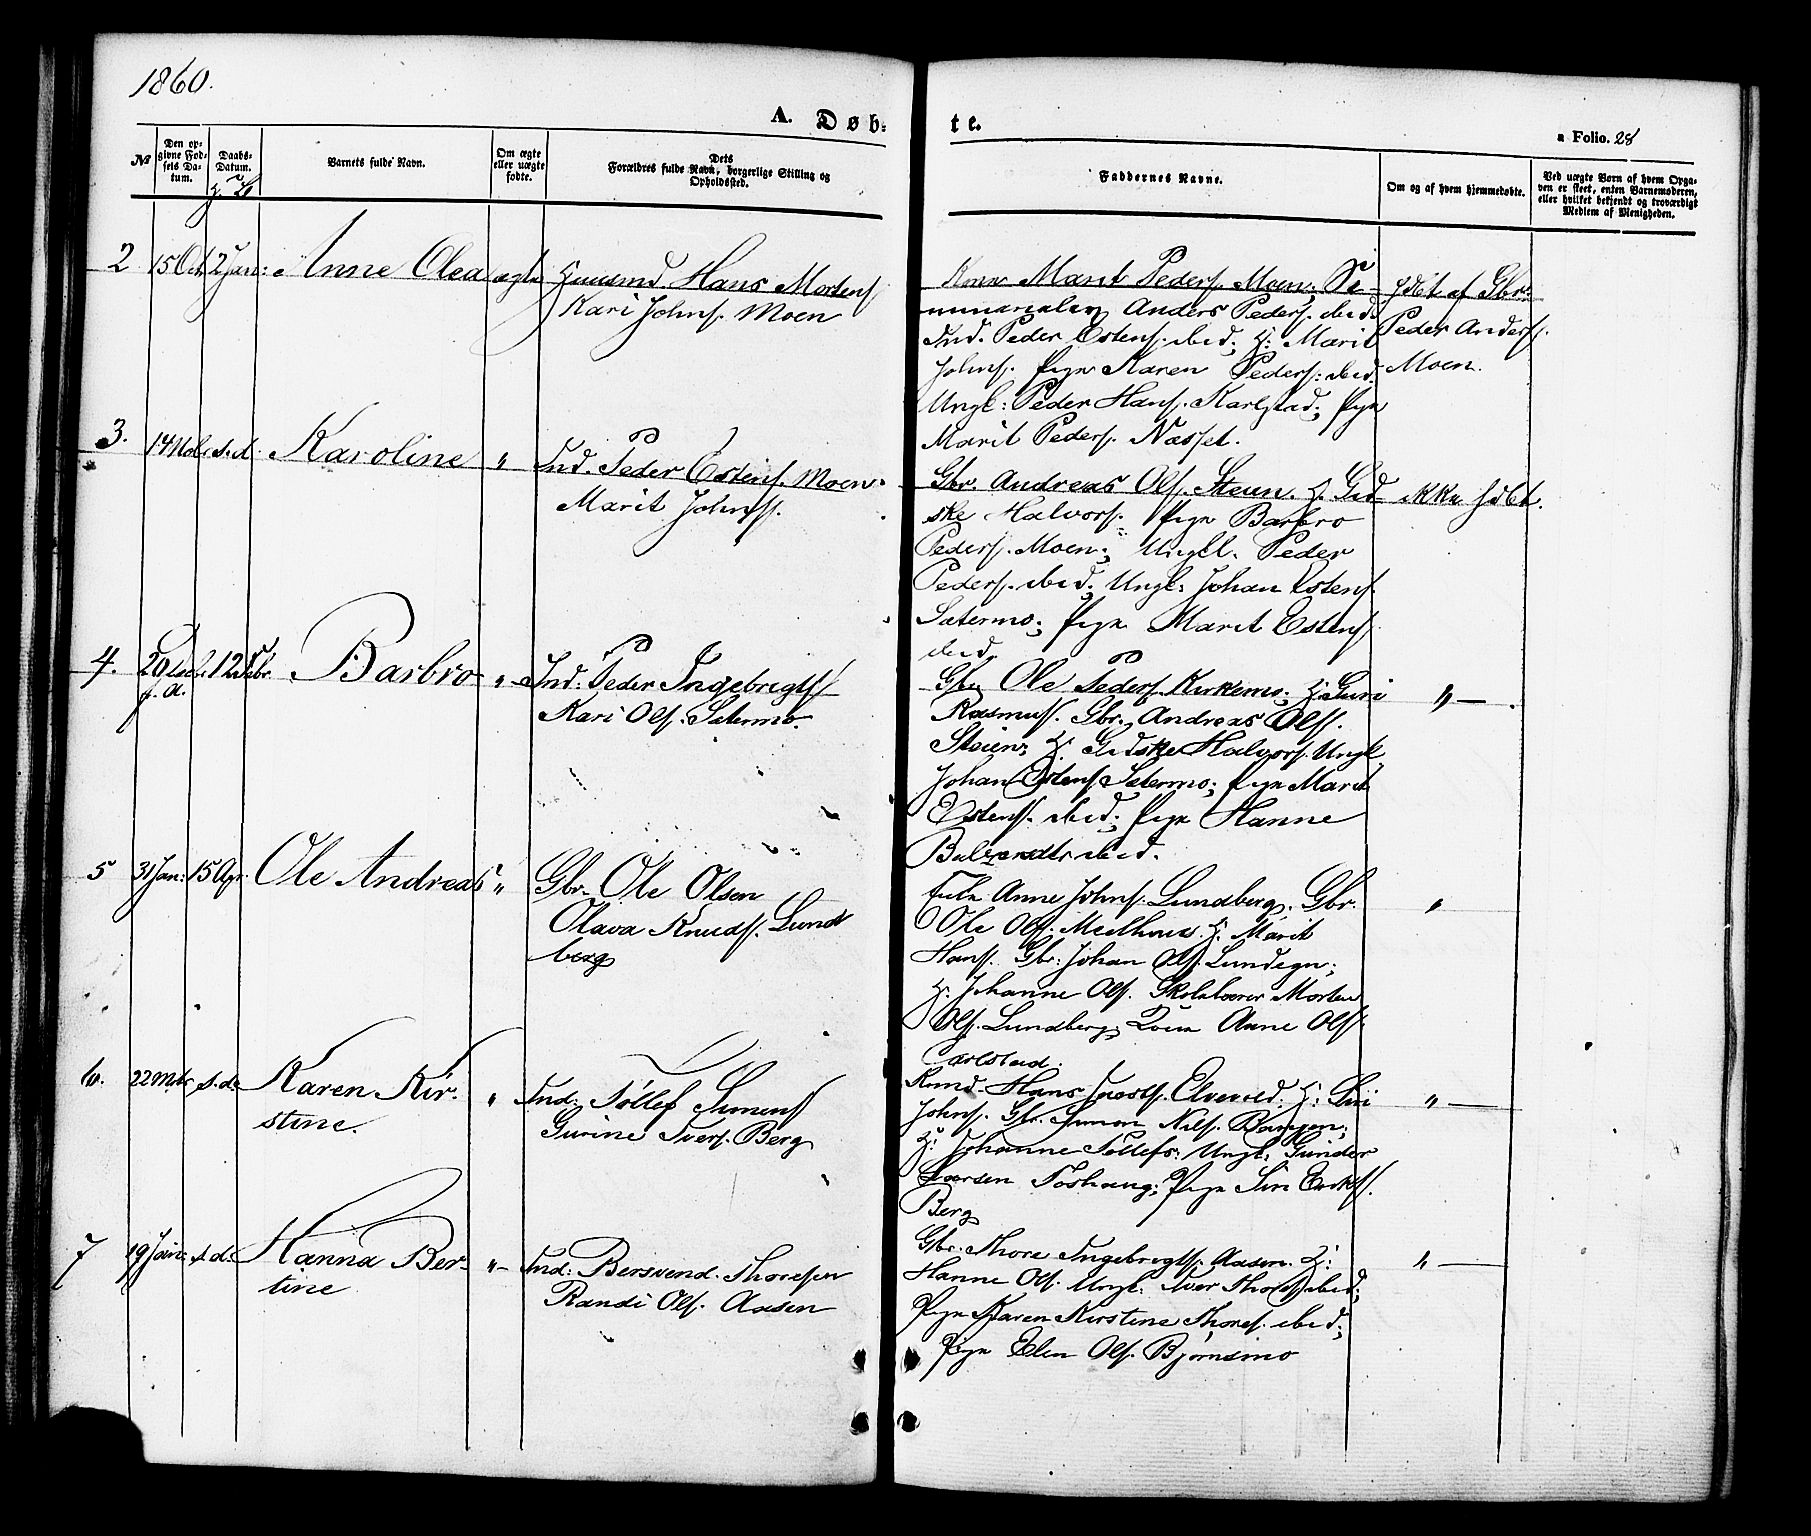 1860.
A. Døb-
te.
a Folio. 28
№
Den op-
givne Fød-
sels Da-
tum.
Daabs-
Datum.
Barnets fulde Navn.
Om ægte
eller uægte
fødte.
Dets
Forældres fulde Navn, borgerlige Stilling og
Opholdssted.
Faddernes Navne.
Om og af hvem hjemmedøbte.
Ved uægte Børn af hvem Opga-
ven er skeet, enten Barnemoderen,
eller hvilket bekjendt og troværdigt
Medlem af Menigheden.
2 15 Oct. 2 Jan: Anne Olea ægte Huusmd Hans Mortens.
Kari Johns. Moen
Kone Marit Peders. Moen; Se-
minarielev Anders Peders. ibid.
Ind. Peder Estens. ibid; H: Marit
Johns. Pige Karen Peders: ibid.
Ungk: Peder Hans. Karlstad; Pige
Marit Peders. Næsset.
hdbt af Gbr:
Peder Anders.
Moen.
3. 14 Nob. s. d. Karoline „ Ind. Peder Estens. Moen.
Marit Johns.
Gbr. Andreas Ols. Steien. H. Gid-
ske Halvors. Pige Barbro
Peders. Moen; Ungk. Peder
Peders. ibid. Ungk: Johan Estens.
Sætermo; Pige Marit Estens.
ibid.
ikke hdbt.
4. 20 Decb. 12 Febr. Barbro „ Ind: Peder Ingebrigts.
f. A.
Kari Ols. Sætermo.
Gbr. Ole Peders. Kirkemo; H: Guri
Rasmus. Gbr. Andreas Ols.
Steien; H. Gidske Halvors. Ungk.
Johan Estens. Sætermo; Pige Marit
Estens. ibid; Pige Hanne
ibid.
„ — .
5 31 Jan: 15 Apr. Ole Andreas „ Gbr. Ole Olsen
Olava Knuds. Lund
berg
Anne Johns. Lundberg. Gbr.
Ole Ols. Meelhuus. H. Marit
Hans. Gbr: Johan Ols. Lundegn;
H. Johanne Ols. Skolelærer Morten
Ols. Lundberg; Anne Ols.
Carlstad.
„
6. 22 Mts s. d. Karen Kir-
stine.
„ Ind: Tollef Simens.
Gurine Ivers. Berg
Hans Elvevold. H: Siri
Johns. Gbr. Simon Nils. Ramsen;
H: Johanne Tollefs: Ungk: Gunder
Ivarsen Foshaug; Pige Siri Eriks.
Berg
„ —
7 19 Jan: s. d: Hanna Ber-
tine
„ Ind: Bersvend Thoresen
Randi Ols. Aasen
Gbr. Thore Ingebrigts. Aasen. H:
Hanne Ols. Ungk: Iver Thores. ibid;
Pige Karen Kirstine Thores. ibid;
Pige Elen Ols. Bjørnsmo
„ —